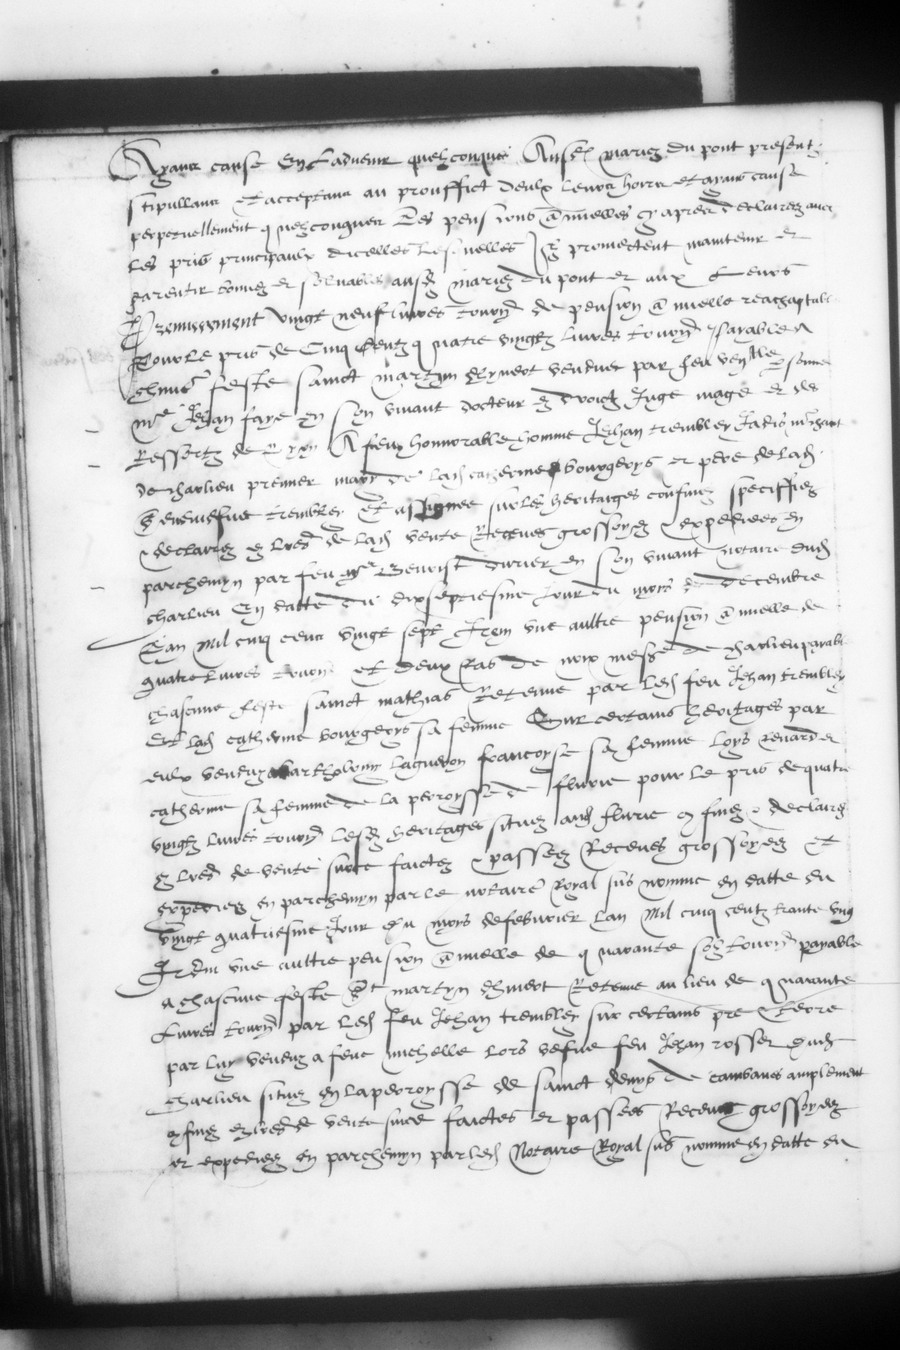 Ayans cause En Ladvenir quelzconques Ausd mariez du pont present
stipullans Et acceptans au prouffict deulx leurs hoirs et ayans cause
perpetuellement quelzconques Les pensions annuelles cy apres declairees avec
les pris principaulx dicelles Lesquelles Ilz promectent maintenir et
garentir bonnes et solvables ausd mariez du pont et aux Leurs
Premierement vingt neuf livres tourn de pension annuelle reachaptable
Pour le pris de Cinq Centz quatre vingtz livres tourn payable a
chune feste sainct martin dhyvert vendue par feu
me Jehan faye en son vivant docteur es droictz Juge mage et des
Ressortz de Lyon A feu honnorable homme Jehan trembley Jadis marchant
de charlieu premier mary de lad catherine bourgeoys et pere de lad
trembley Et assignee sur les heritaiges confinez speciffiez
declairez es lres de lad vente Receues grossoyees expediees en
parchemyn par feu me Benoist durier en son vivant notaire dud
charlieu En datte du dixseptiesme Jour du mois de decembre
Lan mil cinq cens vingt sept Item une aultre pension annuelle de
quatre livres tourn et deux ras de noix mesure de charlieu payable
chascune feste sainct mathias Retenue par led feu Jehan trembley
Et lad catherine bourgeoys sa femme Sur certains heritages par
eulx venduz a barthelemy laguenon francoyse sa femme Loys renard et
catherine sa femme de la perroysse de fleurie pour le pris de quatre
vingtz livres tourn lesd heritages situez aud flurie confinez declairez
es lres de vente surce faictes passees Receues grossoyees Et
expediees en parchemyn par le notaire Royal sus nomme en datte du
vingt quatriesme Jour du moys de febvrier lan mil cinq centz trante ung
Item une aultre pension annuelle de quarante solz tourn payable
a chascune feste st martyn dhivert Retenue au lieu de quarante
livres tourn par led feu Jehan trembley sur certains pre terre
par luy venduz a feue michelle lors vefve feu Jehan rosset dud
charlieu situez en la perroysse de sainct denys de cambanes amplement
confinez es lres de vente surce faictes et passees Receues grossoyees
et expediees en parchemyn par led Notaire Royal sus nomme en datte du